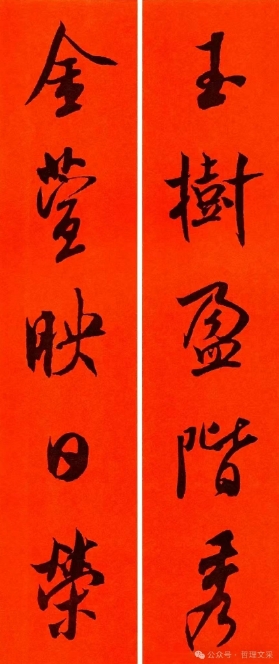 玉樹盈階秀
金萱映日榮
公众号：哲理文采